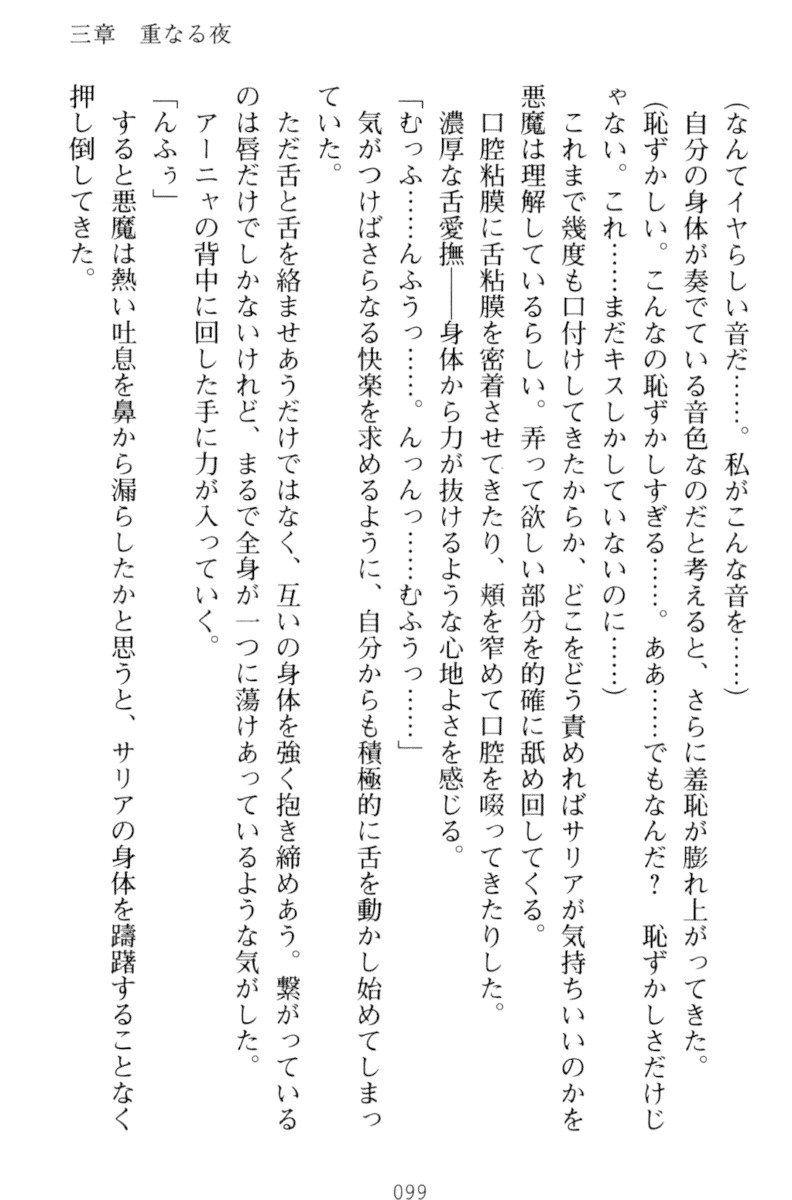 三章　重なる夜
(なんてイヤらしい音だ……。私がこんな音を……)
自分の身体が奏でている音色なのだと考えると、さらに羞恥が膨れ上がってきた。
(恥ずかしい。こんなの恥ずかしすぎる……。ああ……でもなんだ？　恥ずかしさだけじ
ゃない。これ……まだキスしかしていないのに……)
これまで幾度も口付けしてきたからか、どこをどう責めればサリアが気持ちいいのかを
悪魔は理解しているらしい。弄って欲しい部分を的確に舐め回してくる。
口腔粘膜に舌粘膜を密着させてきたり、頬を窄めて口腔を啜ってきたりした。
濃厚な舌愛撫――身体から力が抜けるような心地よさを感じる。
「むっふ……んふうっ……。んっんっ……むふうっ……」
気がつけばさらなる快楽を求めるように、自分からも積極的に舌を動かし始めてしまっ
ていた。
ただ舌と舌を絡ませあうだけではなく、互いの身体を強く抱き締めあう。繋がっている
のは唇だけでしかないけれど、まるで全身が一つに蕩けあっているような気がした。
アーニャの背中に回した手に力が入っていく。
「んふぅ」
すると悪魔は熱い吐息を鼻から漏らしたかと思うと、サリアの身体を躊躇することなく
押し倒してきた。
099